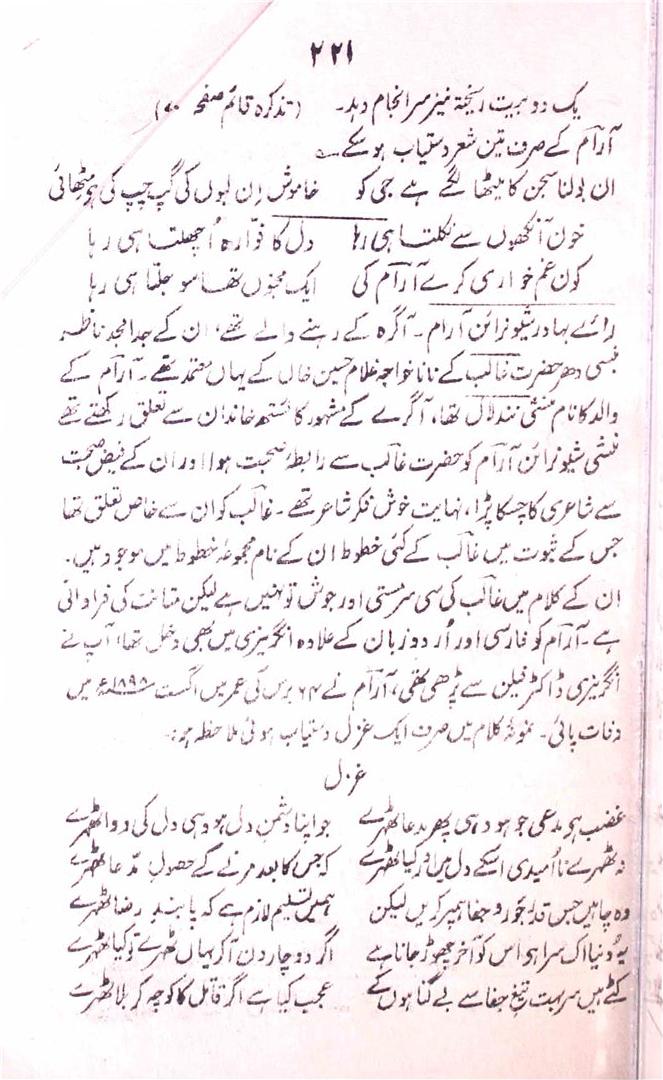 ۲۲۱
یک دو بیت ریختہ نیز سرانجام دہد۔ (تذکرہ قائم صفحہ ۷۰)
آرام کے صرف تین شعر دستیاب ہوسکے۔
ان بولنا سجن کا میٹھا لگے ہے جی کو خاموش اِن لبوں کی گپ چپ کی ہو مٹھائی
خون آنکھوں سے نکلتا ہی رہا دل کا فوّارہ اُچھلتا ہی رہا
کون غم خواری کرے آرام کی ایک مجنوں تھا سو جلتا ہی رہا
رائے بہادر شیونرائن آرام۔ آگرہ کے رہنے والے تھے، ان کے جد امجد ناظر
بنسی دھر حضرت غالب کے نانا خواجہ غلام حسین خاں کے یہاں معتمد تھے۔ آرام کے
والد کا نام منشی نند لال تھا، آگرے کے مشہور کائستھ خاندان سے تعلق رکھتے تھے
منشی شیونرائن آرام کو حضرت غالب سے رابطۂ صحبت ہوا اور ان کے فیض صحبت
سے شاعری کا چسکا پڑا، نہایت خوش فکر شاعر تھے۔ غالب کو ان سے خاص تعلق تھا
جس کے ثبوت میں غالب کے کئی خطوط ان کے نام مجموعۂ خطوط میں موجود ہیں۔
ان کے کلام میں غالب کی سی سرمستی اور جوش تو نہیں ہے لیکن متانت کی فراوانی
ہے۔ آرام کو فارسی اور اُردو زبان کے علاوہ انگریزی میں بھی دخل تھا، آپ نے
انگریزی ڈاکٹر فیلن سے پڑھی تھی، آرام نے ۶۴ برس کی عمر میں اگست ۱۸۹۸ء میں
وفات پائی۔ نمونۂ کلام میں صرف ایک غزل دستیاب ہوئی ملاحظہ ہو:۔
غزل
غضب ہو مدعی جو ہو وہی پھر مدعا ٹھہرے جو اپنا دشمنِ دل ہو وہی دل کی دوا ٹھہرے
نہ ٹھہرے نا اُمیدی اسکے دل میں اور کیا ٹھہرے کہ جس کا بعد مرنے کے حصولِ مدّعا ٹھہرے
وہ چاہیں جس قدر جور و جفا ہمپر کریں لیکن ہمیں تسلیم لازم ہے کہ پابندِ رضا ٹھہرے
یہ دنیا اک سرا ہو اس کو آخر چھوڑ جانا ہے اگر دو چار دن آکر یہاں ٹھہرے تو کیا ٹھہرے
کٹے ہیں سر بہت تیغ جفا سے بے گناہوں کے عجب کیا ہے اگر قاتل کا کوچہ کربلا ٹھہرے